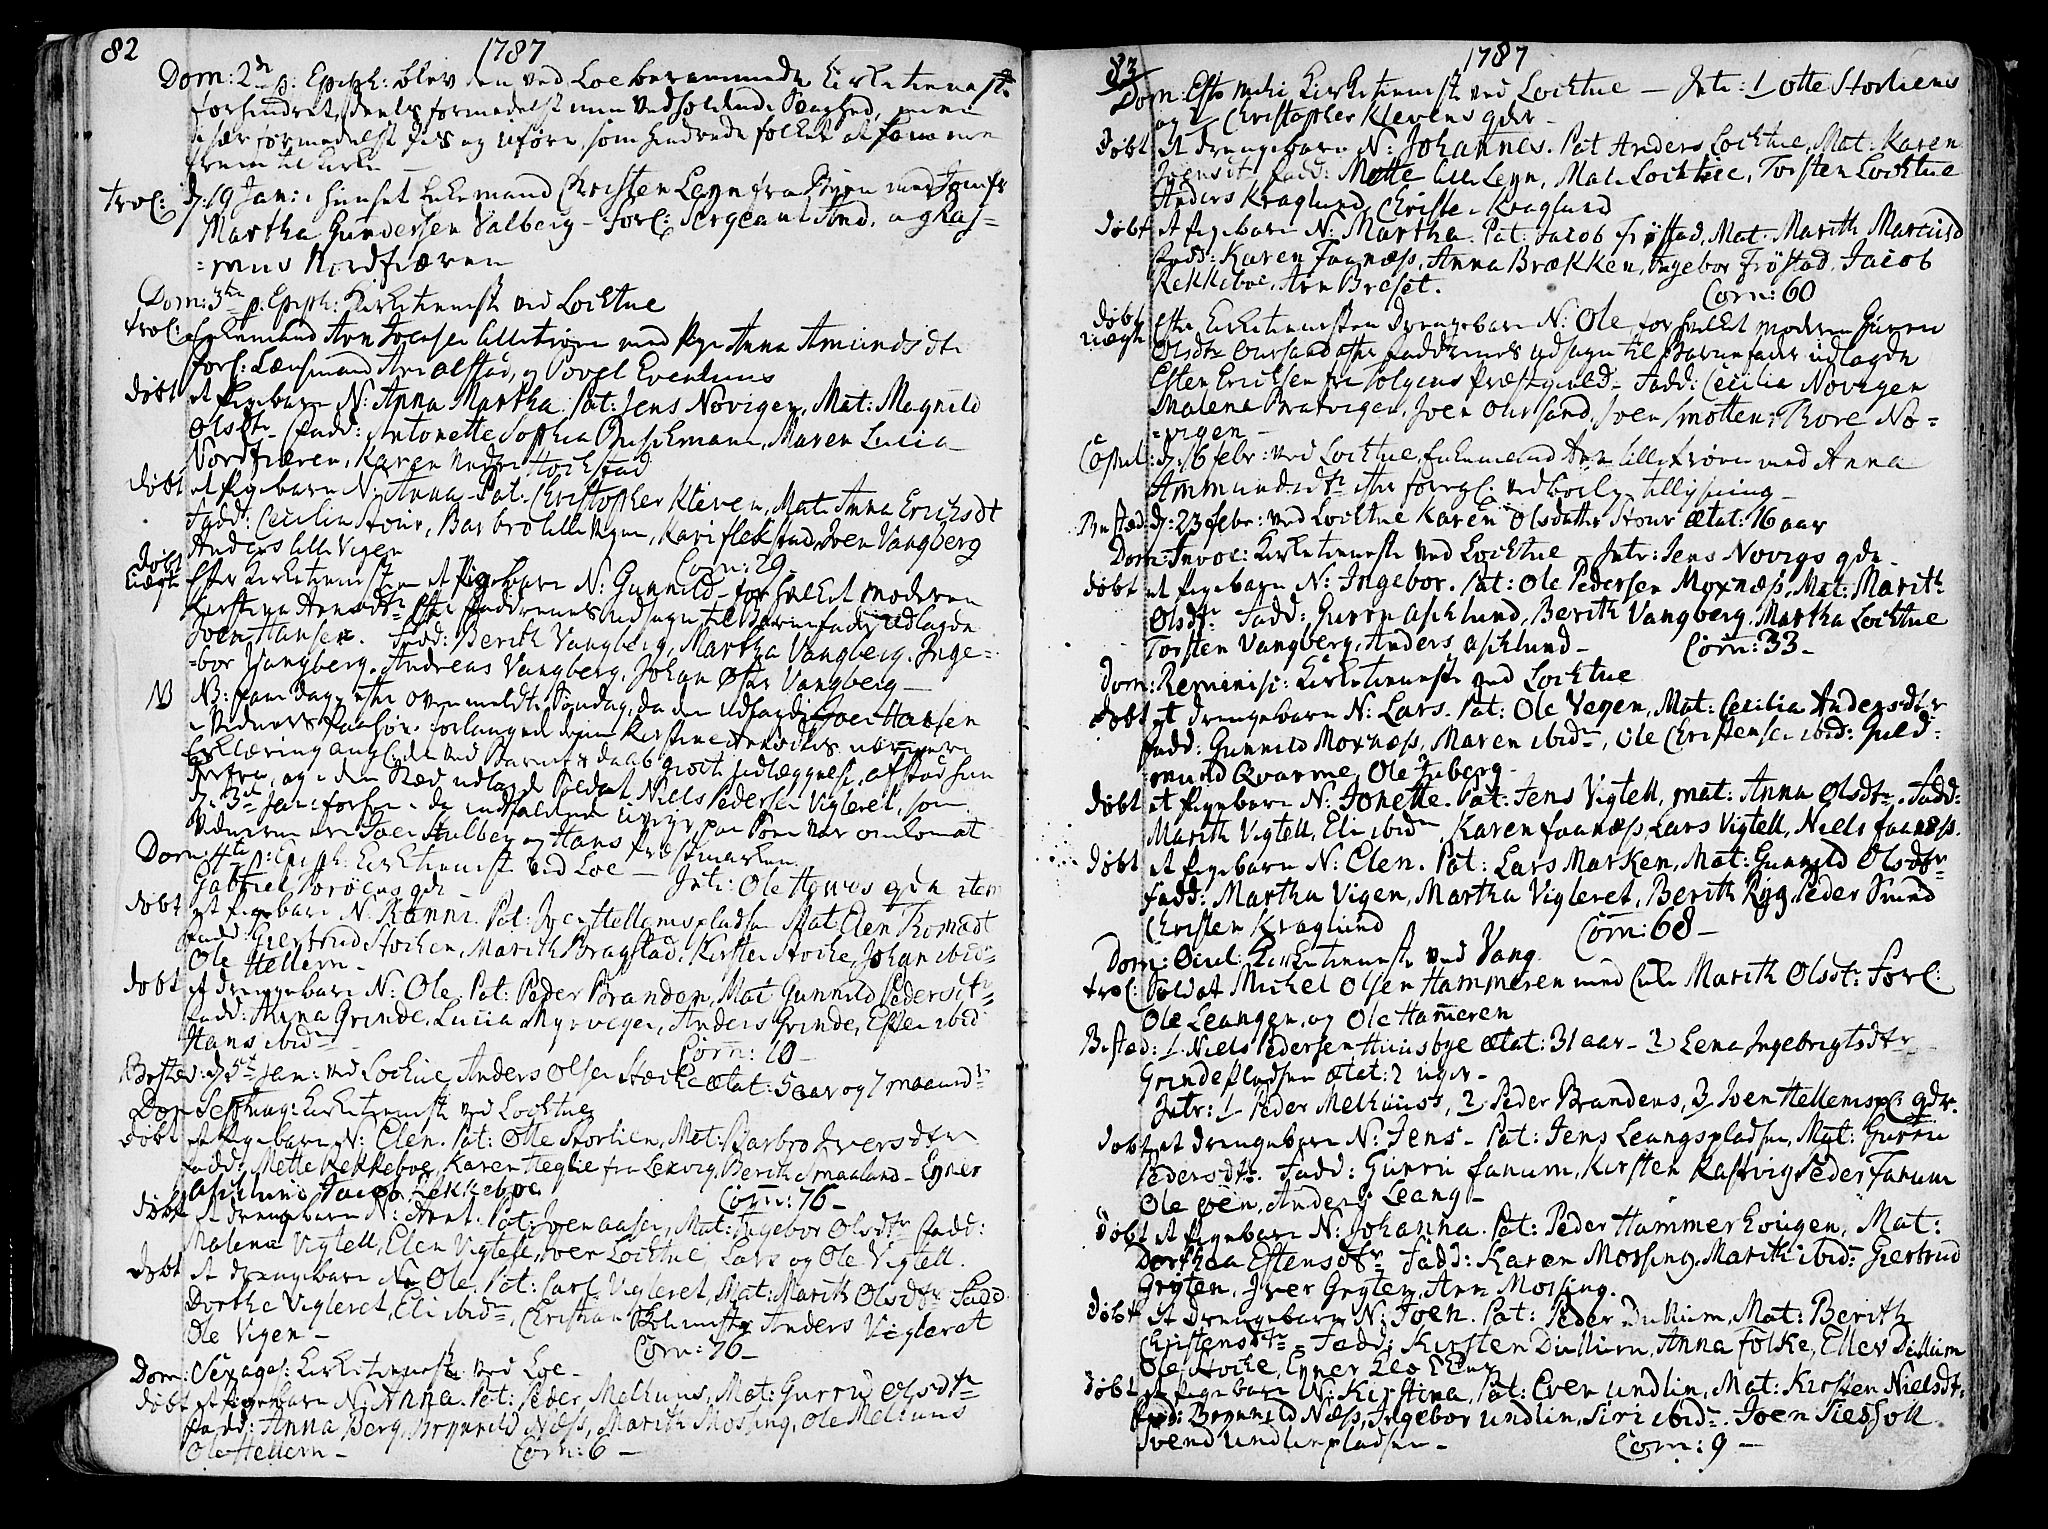 82
1787
Dom: 2den p: Epiph: blev den ved Loe berammede Kirketienneste
forhindret, deels formedelst min vedholdende Svaghed, men
især formedelst Iis og uføre, som hindrede folket at komme
frem til Kirke
trol: d: 19 Jan: Enkemand Christen Leyn fra Byen med Jomfr
Martha Gundersen Valberg - forl: Sergeant Lind, og Ras-
=mus Nordfiæren
Dom: 3tie p: Epiph: Kirketieneste ved Locktue
trol: Enkemand Arn Joensen lilletrøen med Pige Anna Amundsdtr
forl: Lensmand Arn alstad, og Povel Evenhuus
døbt et Pigebarn N: Anna Martha. Pat: Jens Novigen, Mat: Magnild
Olsdtr fadd: Antonette Sophia Buschmann, Maren Lucia
Nordfiæren, Karen Hockstad
døbt et Pigebarn N: Anna. Pat: Christopher Kleven, Mat: Anna Erichsdt
Fadd: Cecilia Stour, Barbro lille Vigen, Kari flekstad, Iver Vangberg
Anders lille Vigen
Com: 29
døbt uægte Efter Kirketienesten et Pigebarn N: Gunnild - for hvilket moderen
Kirstina Arnsdtr efter faddernes udsagn til Barnefader udlagde
Joen Hansen. Fadd: Berith Vangberg, Martha Vangberg, Inge-
=bor Vangberg, Andreas Vangberg, Johan Øster Vangberg
NB NB: samme dag efter ovenmeldte Søndag, da den udlagde Joen Hansen
i Vidners Paahør forlangede denne Kirstine Arnsdtrs nærmere
Erklæring angaaende ved Barnets daab giorte udlæggelse, afstod hun
derfra, og i den Sted udlagde Soldat Niels Pedersen Vigleret, som
Dom: 4te p: Epiph: Kirketieneste ved Loe - Intr: Ole Howes qde item
Gabriel Morøens qde
døbt et Pigebarn N: Ranni. Pat: Joen Hellemspladsen Mat: Elen Thomædt
Fadd: Giertrud Stocken, Marith Bragstad, Kirsten Stocke, Johan ibidm
Ole Hellem
døbt et drengebarn N: Ole. Pat: Peder Branden, Mat: Gunnild Pedersdtr
fadd: Anna Grinde, Lucia Myrvegen, Anders Grinde, Esten ibid
Hans ibidm
Com: 10
Begsted: d: 5te Jan: ved Locktue Anders Olsen Stocke ætat: 5 aar og 7 maaneder
Dom Septuag: Kirketieneste ved Locktue
døbt et Pigebarn N: Elen. Pat: Otte Storlien, Mat: Barbro Iversdtr
fadd: Mette Rekkeboe, Karen Heglie fra Lexvig, Berith Smaaland - Eyner
Aschlund Jacob Rekkeboe
Com: 76
døbt et drengebarn N: Arnt. Pat: Joen aasen, Mat: Ingebor Olsdtr fadd:
Malena Vigtell, Elen Vigtell, Iver Locktue, Lars og Ole Vigtell
døbt et drengebarn N: Ole. Pat: Carl Vigleret, Mat: Marith Olsdtr Fadd:
Dorthe Vigleret, Eli ibidm, Christian Anders Vigleret
Ole Vigen
Com: 76
Dom: Sexages: Kirketieneste ved Loe
døbt et Pigebarn N: Anna. Pat: Peder Melhuus, Mat: Gurru Olsdtr
fadd: Anna Berg, Brynnild Næss, Marith Mossing, Ole Melhuus
Ole Hellem
Com: 6
83
1787
Dom: Esto mihi Kirketieneste ved Locktue - Intr: 1 Otte Storliens
og 2 Christopher Klevens qdr
døbt et drengebarn N: Johannes. Pat Anders Locktue, Mat: Karen
Joensdt fadd: Mette lille Leyn, Mali Locktue, Torsten Locktue
Anders Kraglund, Christen Kraglund
døbt et Pigebarn N: Martha. Pat: Jacob frøstad, Mat: Marith
fadd: Karen Faanæss, Anna Brækken, Ingebor frøstad, Jacob
Rekkeboe, Arn Breset.
Com: 60
døbt uægte Efter Kirketienesten drengebarn N: Ole, for hvilket moderen Gurru
Olsdtr efter faddernes udsagn til Barnefader udlagde
Esten Erichsen fra Tolgens Præstegield - Fadd: Cecilia Novigen
Malena Bratvigen, Joen Oursand, Iven Smotten, Thore No-
=vigen
Copul: d: 16 febr: ved Locktue, Enkemand Arn lilletrøen med Anna
Ammundsdtr efter foregl: vedborlig tillysning
Begsted: d: 23 febr: ved Locktue Karen Olsdatter Stour ætat: 16 aar
Dom: Invoc: Kirketieneste ved Locktue Intr: Jens Novigs qde
døbt et Pigebarn N: Ingebor. Pat: Ole Pedersen Moxnæss, Mat: Marith
Olsdtr Fadd: Gurru aschlund, Berith Vangberg, Martha Locktue
Torsten Vangberg, Anders aschlund
Com: 33
Dom: Reminisc: Kirketieneste ved Locktue
døbt et drengebarn N: Lars. Pat: Ole Vegen, Mat: Cecilia Andersdtr
fadd: Gunnild Moxnæss, Maren ibidm, Ole Christensen ibid: Guld-
=mund Qvarme, Ole Inberg
døbt et Pigebarn N: Jonette. Pat: Jens Vigtell, mat: Anna Olsdtr. Fadd:
Marith Vigtell, Eli ibidm, Karen faanæss Lars Vigtell, Niels faanæss.
døbt et Pigebarn N: Elen. Pat: Lars Marken, Mat: Gunnild Olsdtr
Fadd: Martha Vigen, Martha Vigleret, Berith Ryg, Peder Smed
Christen Kraglund
Com: 68
Dom: Ocul: Kirketieneste ved Vang
trol: Soldat Michel Olsen Hammeren med Marith Olsdtr Forl:
Ole Leangen, og Ole Hammeren
Begsted: 1 Niels Pedersen Huusbye ætat: 31 aar - 2 Lena Ingebrigtsdtr
Grindepladsen ætat: 2 uger
Intr: 1 Peder Melhuuss, 2 Peder Brandens, 3 Joen Hellemspl: qdr.
døbt et drengebarn N: Jens. Pat: Jens Leangspladsen, Mat: Gurru
Pedersdtr. Fadd: Gurru fanum, Kirsten Rasvig Peder Fanum
Ole øen, Anders Leang
døbt et Pigebarn N: Johanna. Pat: Peder Hammer Evigen, Mat:
Dorthea Estensdtr Fadd: Karen Mossing, Marith ibidm Giertrud
Gryten, Iver Gryten, Arn Mossing.
døbt et drengebarn N: Joen. Pat: Peder Dullum, Mat: Berith
Christensdtr - Fadd: Kirsten Dullum, Anna Folke, Ellev Dullum
Ole Stocke, Eyner
døbt et Pigebarn N: Kirstina, Pat: Even undlin, Mat: Kirsten Nielsdt:
Fadd: Brynnild Næss, Ingebor undlin, Siri ibidm. Joen Siesfoll
Svend undlinpladsen
Com: 9